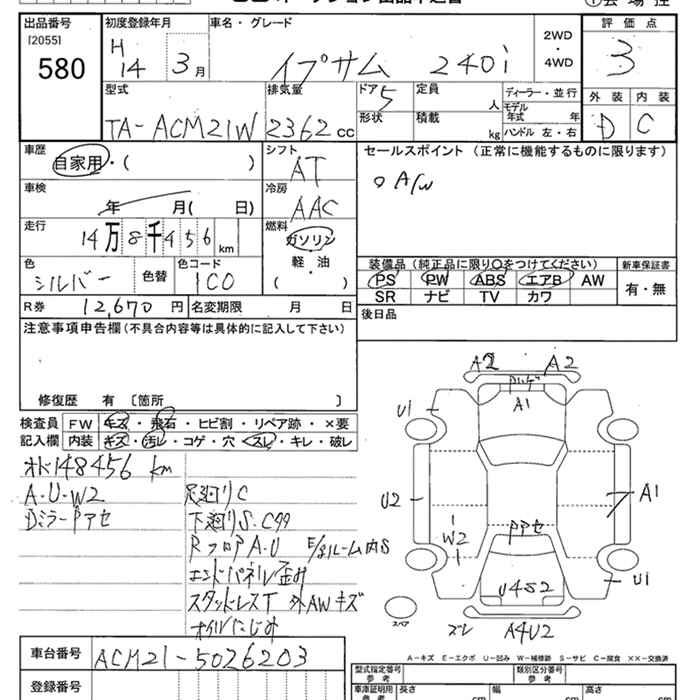 出品番号
[2055]
580
初度登録年月
H 14 年 3 月
車名・グレード
イプサム 240i
2WD
・
4WD
評価点
3
外装 内装
D C
型式
TA-ACM21W
排気量
2362 cc
ドア 5
形状
定員 人
積載 kg
ディーラー・並行
モデル
年式 年
ハンドル 左・右
車歴
自家用・( )
シフト
AT
セールスポイント (正常に機能するものに限ります)
○ A/W
車検
年 月( 日)
冷房
AAC
走行
14万8千456 km
燃料
ガソリン
軽・油
( )
色
シルバー
色替
色コード
1C0
装備品 (純正品に限り○をつけてください)
PS PW ABS エアB AW
SR ナビ TV カワ
新車保証書
有・無
R券 12,670 円
名変期限 月 日
後日品
注意事項申告欄 (不具合内容等は具体的に記入して下さい)
修復歴 有 〔箇所 〕
検査員
記入欄
FW キズ・飛石・ヒビ割・リペア跡・×要
内装 キズ・汚レ・コゲ・穴・スレ・キレ・破レ
148456 km
A・U・W2
Dミラーアセ
足廻りC
下廻りS・C
RフロアA・U
E/gルーム内S
エンドパネル歪み
スタッドレスT 外AWキズ
オイルにじみ
A2 A2
A1
U1
U2
A1
W2
U4S2
U1
スペア
ズレ A4U2
車台番号
ACM21-5026203
登録番号
A-キズ E-エクボ U-凹み W-補修跡 S-サビ C-腐食 ××-交換済
型式指定番号
参考
類別区分番号
参考
車庫証明用
参考
長さ cm
幅 cm
高さ cm